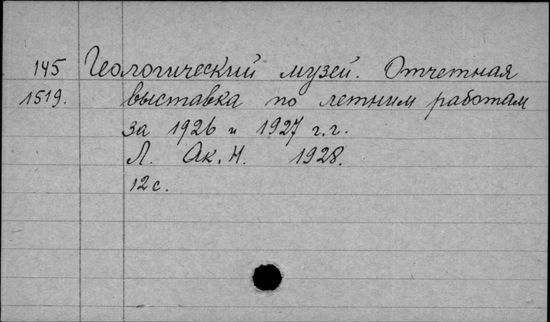 145 Геологический музей. Отчетная
1519. выставка по летним работам
за 1926 и 1927 г.г.
Л. Ак. Н. 1928.
12 с.